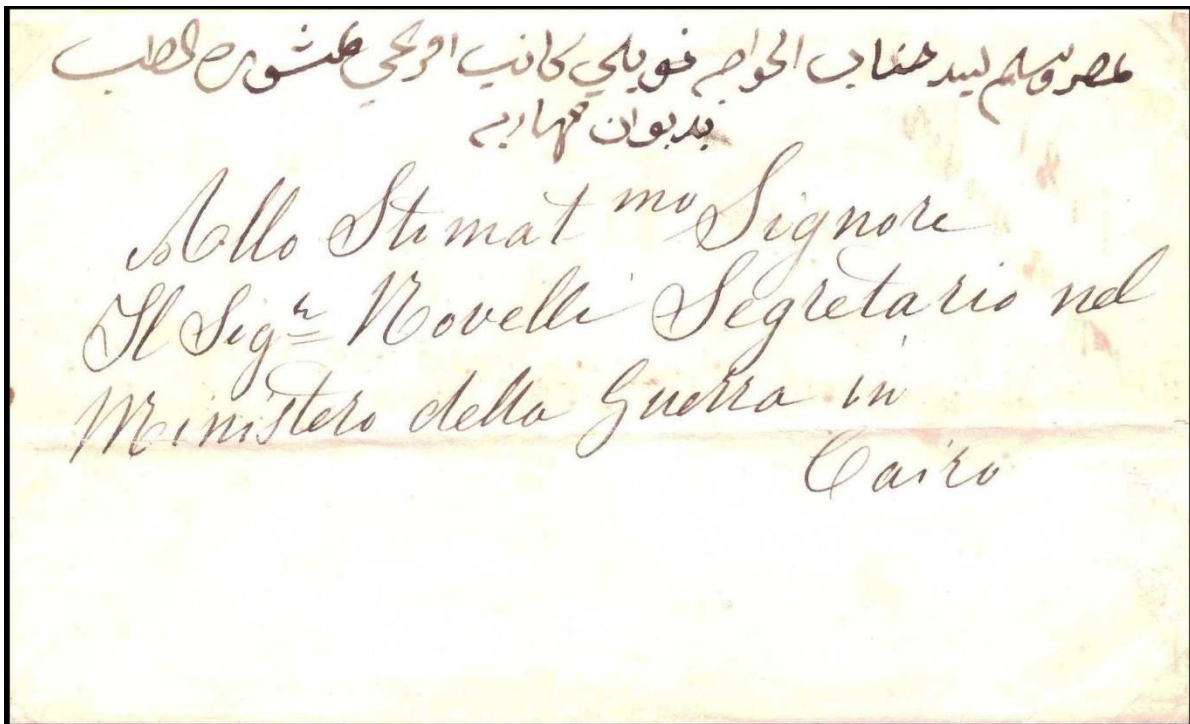 لمصر وتسلم ليد جناب الخواجه نوبلي كاتب افرنجي بمشورة الطب
بديوان جهاديه
Allo Stimat mo Signore
Il Sigr Novelli Segretario nel
Ministero della Guerra in
Cairo